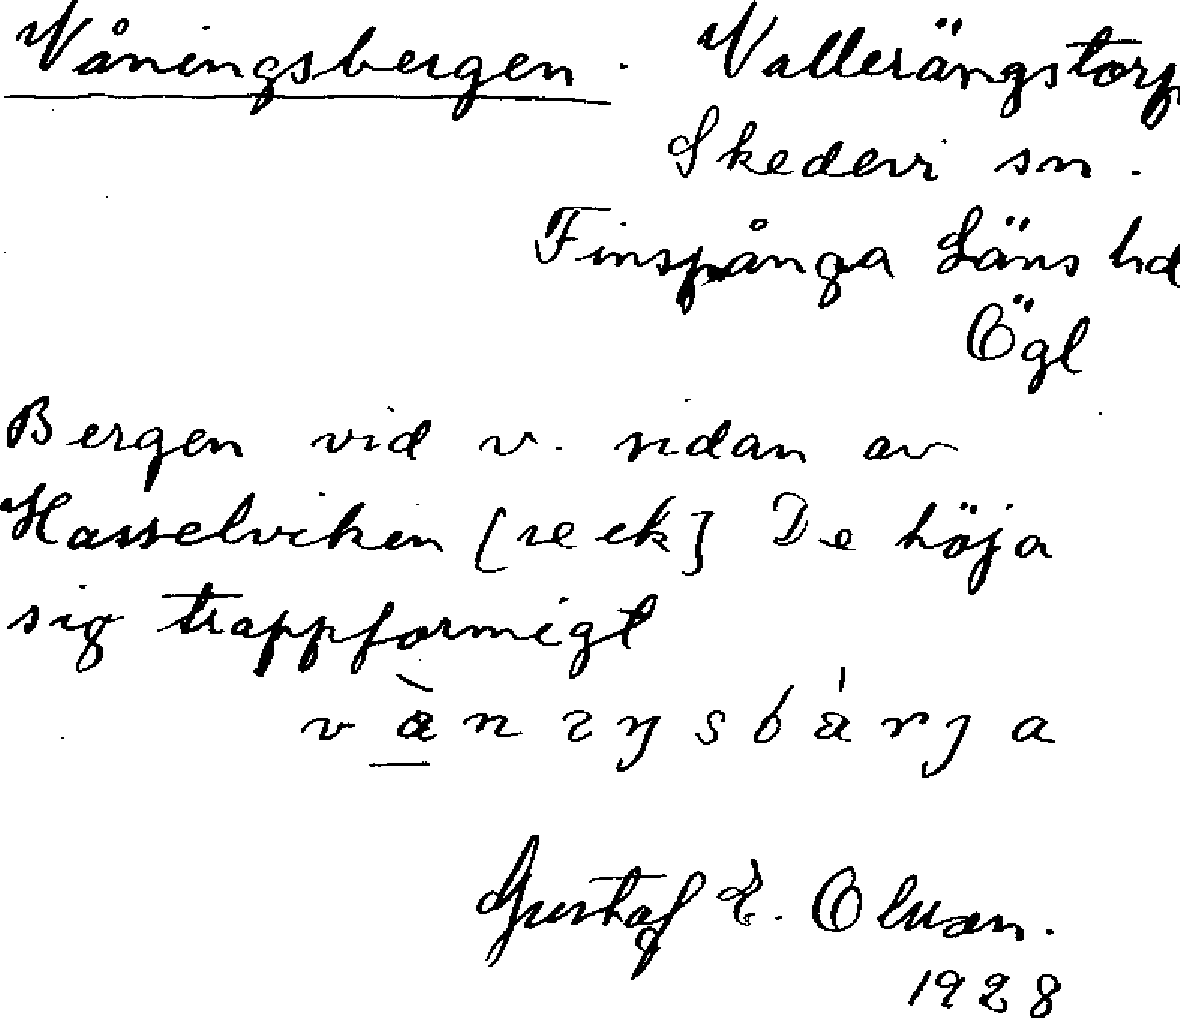 Våningsbergen. Vallerängstorp
Skedevi sn.
Finspånga Läns hd
Ögl
Bergen vid v. sidan av
Hasselviken [se ek] De höja
sig trappformigt
Gustaf E. Olsson.
1928